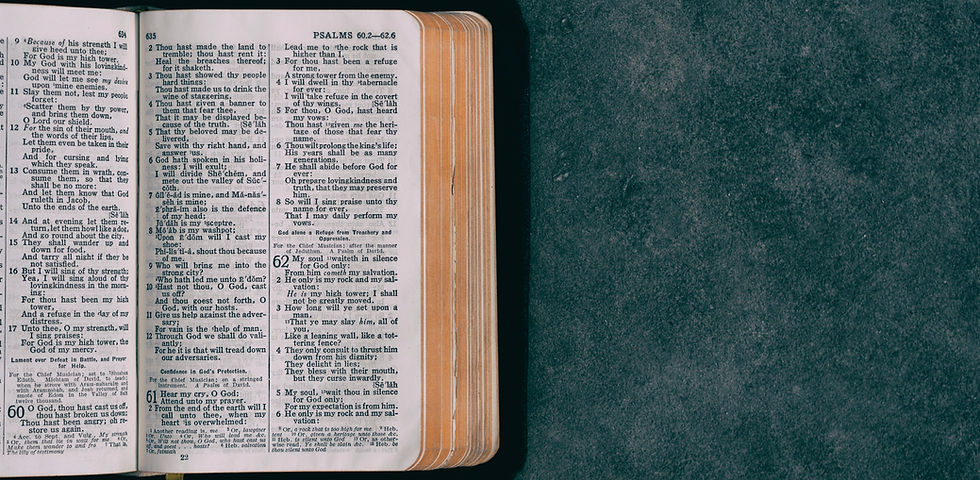 634
9 Because of his strength I will
give heed unto thee;
For God is my high tower.
10 My God with his lovingkind-
ness will meet me:
God will let me see my desire
upon mine enemies.
11 Slay them not, lest my people
forget:
Scatter them by thy power,
and bring them down,
O Lord our shield.
12 For the sin of their mouth, and
the words of their lips,
Let them even be taken in their
pride,
And for cursing and lying
which they speak.
13 Consume them in wrath, con-
sume them, so that they
shall be no more:
And let them know that God
ruleth in Jacob,
Unto the ends of the earth.
[Sē´lăh
14 And at evening let them re-
turn, let them howl like a dog,
And go round about the city.
15 They shall wander up and
down for food,
And tarry all night if they be
not satisfied.
16 But I will sing of thy strength;
Yea, I will sing aloud of thy
lovingkindness in the morn-
ing:
For thou hast been my high
tower,
And a refuge in the day of my
distress.
17 Unto thee, O my strength, will
I sing praises:
For God is my high tower, the
God of my mercy.
Lament over Defeat in Battle, and Prayer
for Help.
For the Chief Musician; set to
Eduth. Michtam of David, to teach;
when he strove with Aram-naharaim and
with Aramzobah, and Joab returned, and
smote of Edom in the Valley of Salt
twelve thousand.
60 O God, thou hast cast us off,
thou hast broken us down;
Thou hast been angry; oh re-
store us again.
635
2 Thou hast made the land to
tremble; thou hast rent it:
Heal the breaches thereof;
for it shaketh.
3 Thou hast showed thy people
hard things:
Thou hast made us to drink the
wine of staggering.
4 Thou hast given a banner to
them that fear thee,
That it may be displayed be-
cause of the truth. [Sē´lăh
5 That thy beloved may be de-
livered,
Save with thy right hand, and
answer us.
6 God hath spoken in his holi-
ness: I will exult;
I will divide Shē´chĕm, and
mete out the valley of Sŭc´-
cŏth.
7 Gĭl´ē-ăd is mine, and Mă-năs´-
sēh is mine;
Ē´phră-ĭm also is the defence
of my head;
Jū´dăh is my sceptre.
8 Mō´ăb is my washpot;
Upon Ē´dŏm will I cast my
shoe:
Phĭ-lĭs´tĭ-ȧ, shout thou because
of me.
9 Who will bring me into the
strong city?
Who hath led me unto Ē´dŏm?
10 Hast not thou, O God, cast
us off?
And thou goest not forth, O
God, with our hosts.
11 Give us help against the adver-
sary;
For vain is the help of man.
12 Through God we shall do vali-
antly;
For he it is that will tread down
our adversaries.
Confidence in God's Protection.
For the Chief Musician; on a stringed
instrument. A Psalm of David.
61 Hear my cry, O God;
Attend unto my prayer.
2 From the end of the earth will I
call unto thee, when my
heart is overwhelmed:
22
PSALMS 60.2—62.6
Lead me to the rock that is
higher than I.
3 For thou hast been a refuge
for me,
A strong tower from the enemy.
4 I will dwell in thy tabernacle
for ever:
I will take refuge in the covert
of thy wings. [Sē´lăh
5 For thou, O God, hast heard
my vows:
Thou hast given me the heri-
tage of those that fear thy
name.
6 Thou wilt prolong the king's life;
His years shall be as many
generations.
7 He shall abide before God for
ever:
Oh prepare lovingkindness and
truth, that they may preserve
him.
8 So will I sing praise unto thy
name for ever,
That I may daily perform my
vows.
God alone a Refuge from Treachery and
Oppression.
For the Chief Musician; after the manner
of Jeduthun. A Psalm of David.
62 My soul waiteth in silence
for God only:
From him cometh my salvation.
2 He only is my rock and my sal-
vation:
He is my high tower; I shall
not be greatly moved.
3 How long will ye set upon a
man,
That ye may slay him, all of
you,
Like a leaning wall, like a tot-
tering fence?
4 They only consult to thrust him
down from his dignity;
They delight in lies;
They bless with their mouth,
but they curse inwardly.
[Sē´lăh
5 My soul, wait thou in silence
for God only;
For my expectation is from him.
6 He only is my rock and my sal-
vation: